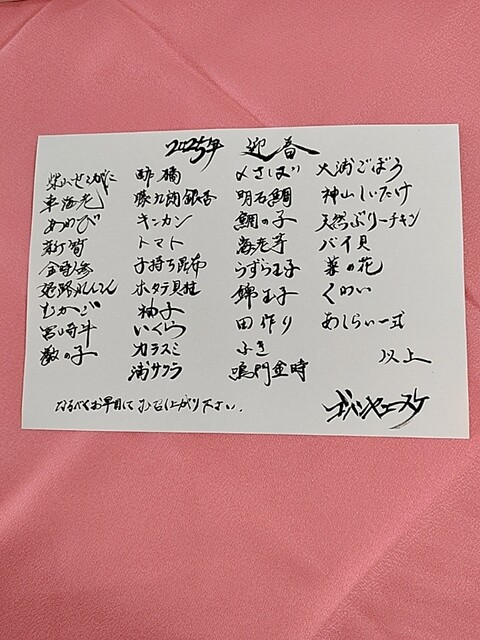 2025年 迎春
柴山せこがに
車海老
あわび
新筍
金時人参
姫路れんこん
むかご
宮崎牛
数の子
酢橘
藤九朗銀杏
キンカン
トマト
子持ち昆布
ホタテ貝柱
柚子
いくら
カラスミ
浦サワラ
〆さば
明石鯛
鯛の子
海老芋
うずら玉子
錦玉子
田作り
ふき
鳴門金時
大浦ごぼう
神山しいたけ
天然ぶりーチキン
バイ貝
菜の花
くわい
あしらい一式
以上
なるべくお早目にお召し上がり下さい。
ゴバンヤエースケ